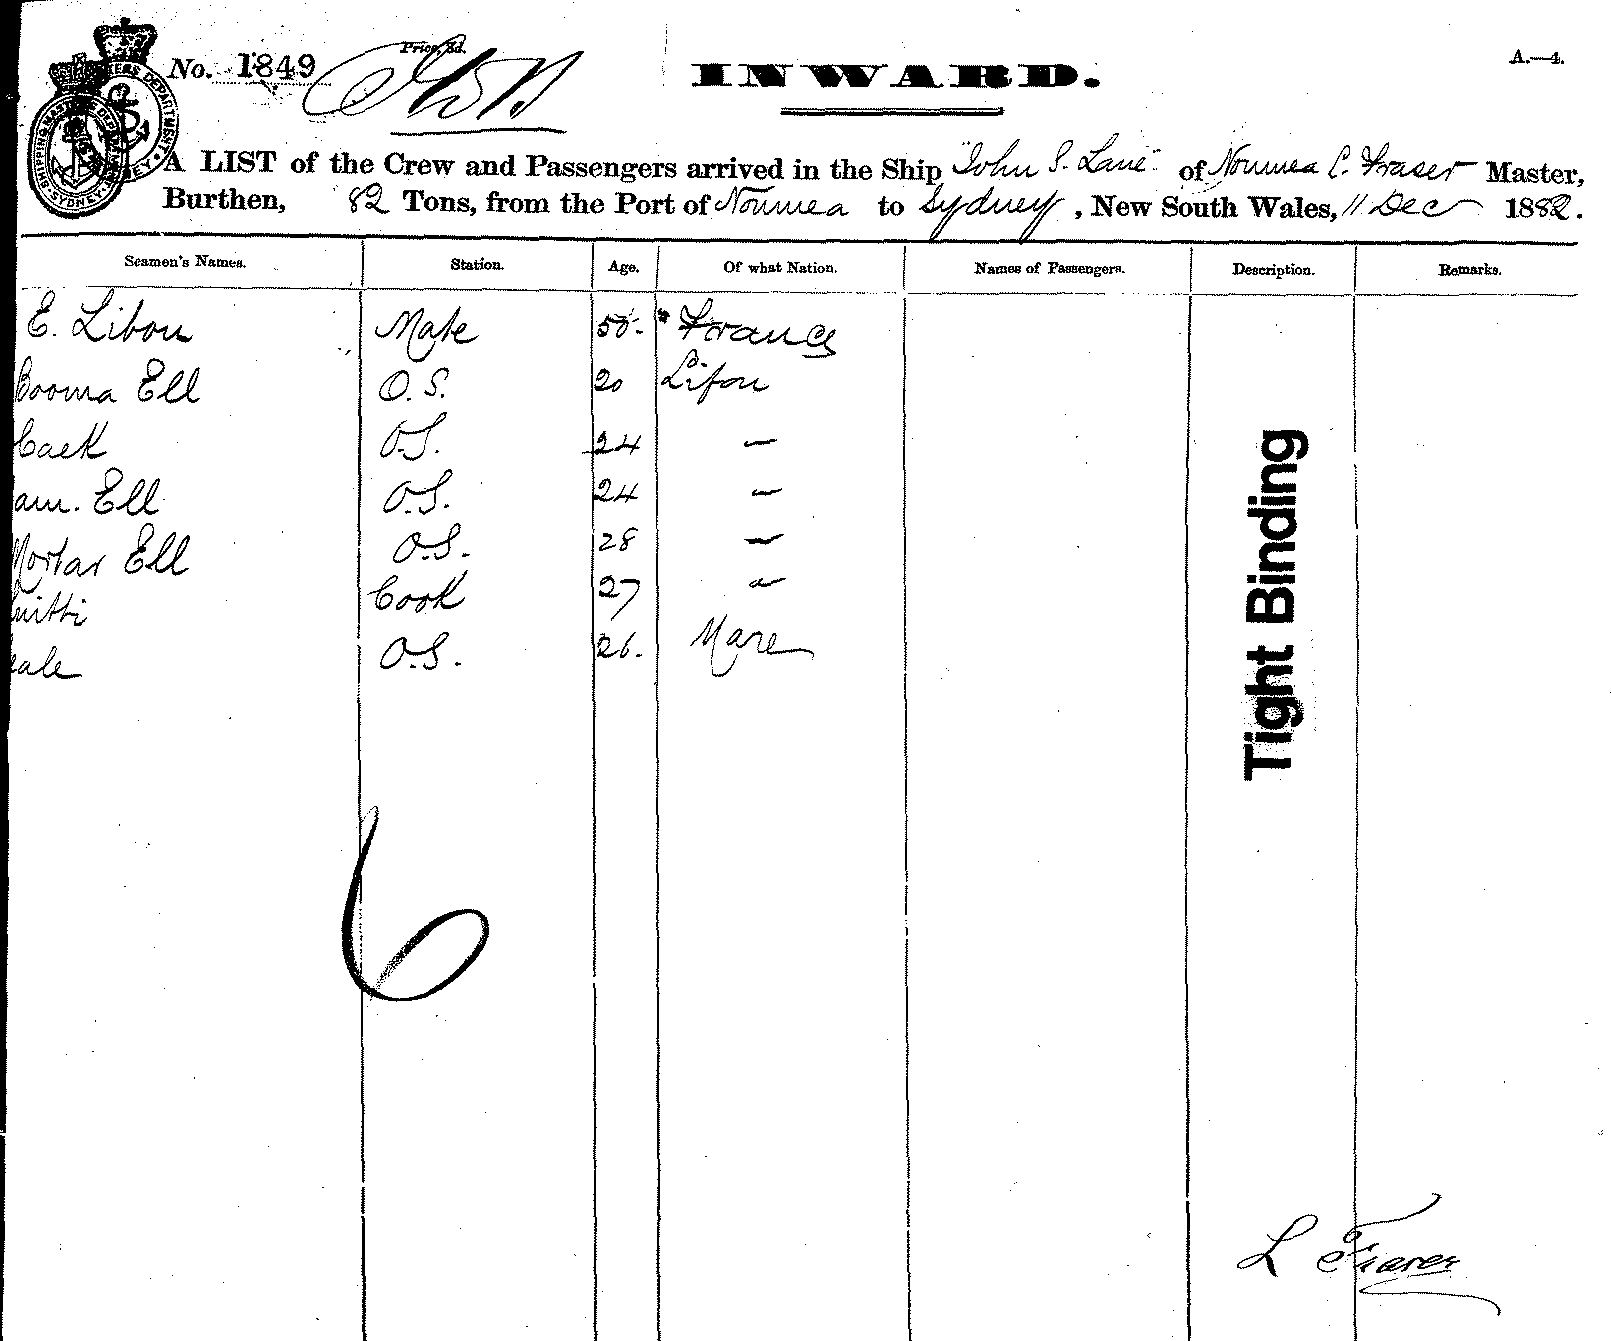 No. 1849
Price, 3d.
INWARD.
A.—4.
A LIST of the Crew and Passengers arrived in the Ship "John S. Lane" of Noumea C. Fraser Master,
Burthen, 82 Tons, from the Port of Noumea to Sydney, New South Wales, 11 Dec 1882.
Seamen's Names. Station. Age. Of what Nation. Names of Passengers. Description. Remarks.
E. Libou Mate 50. France
Booma Ell O.S. 20 Lifou
Caek O.S. 24 —
am. Ell O.S. 24 —
Mortar Ell O.S. 28 —
mitti Cook 27 "
eale O.S. 26. Mare
Tight Binding
6
L Fraser